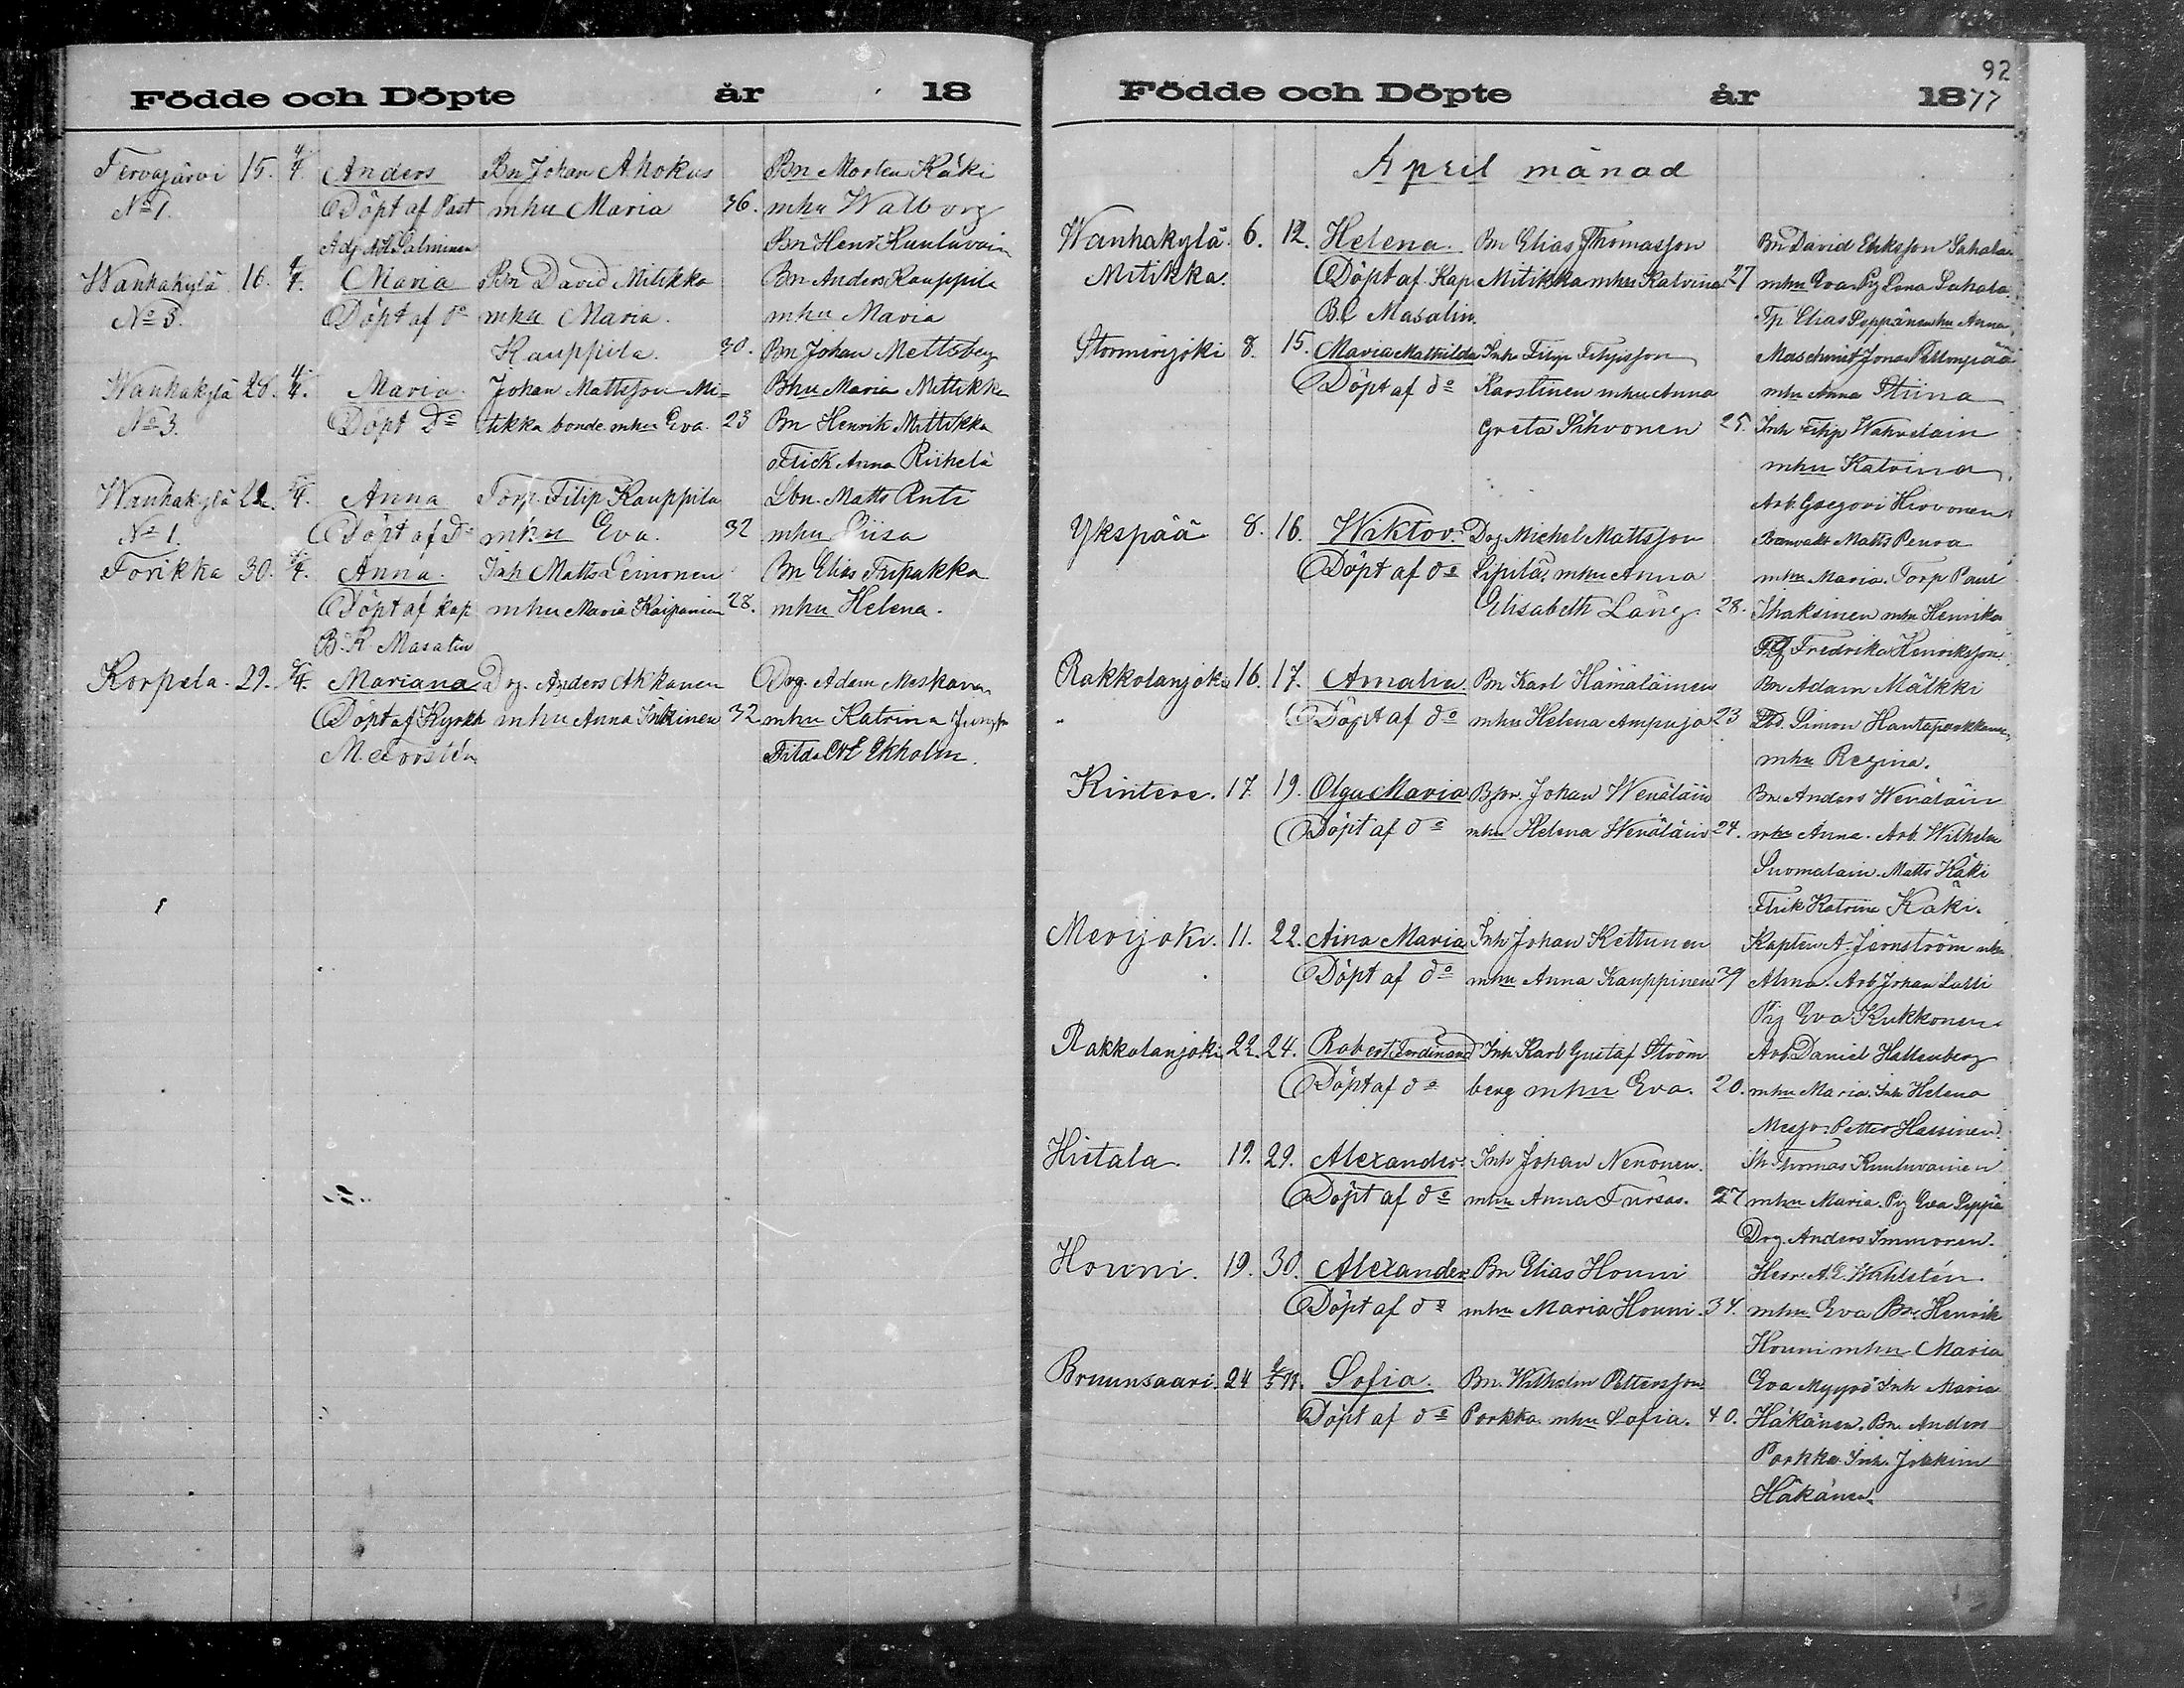 Födde och Döpte år 18
Tervajärvi 15. 4/4. Anders Bn Johan Ahokas Bn Morten Käki
No 1. Döpt af Past mhu Maria 36. mhu Walborg
Adj. Salminen Bn Henr Kuuluvain
Wanhakylä 16. 4. Maria Bn David Mitikka Bn Anders Kauppila
No 3. Döpt af do mhu Maria. mhu Maria
Kauppila. 30. Bn Johan Mettsberg
Wanhakylä 28. 4. Maria. Johan Mattsson Mi- Bhu Maria Mittikka
No 3. Döpt Do tikka bonde mhu Eva. 23 Bn Henrik Mittikka
Flick Anna Riihelä
Wanhakylä 22. 4. Anna Torp. Filip Kauppila Lbn. Matts Anti
No 1. Döpt af Do mhu Eva. 32 mhu Liisa
Torikka 30. 4. Anna. Inh Matts Leinonen Bn Elias Tripakka
Döpt af kap mhu Maria Kaipanien 28. mhu Helena.
B. R. Masalin
Korpela. 29. 4. Mariana Drg. Anders Akkanen Drg. Adam Meskanen
Döpt af Kyrkh mhu Anna Inkinen 32 mhu Katrina Jungfr
M. Torstén Ekholm.
92
Födde och Döpte år 1877
April månad
Wanhakylä 6. 12. Helena. Bn Elias Thomasson Bn David Eriksson Suhala
Mitikka. Döpt af Kap. Mitikka mhu Katrina 27 mhu Eva. Pig Lena Suhala.
B. R Masalin. Tp Elias Seppänen hu Anna
Storminjoki 8. 15. Maria Mathilda Inh Filip Filipsson Maschinist Jonas
Döpt af do Karstinen mhu Anna mhu Anna Stiina
Greta Sihvonen 25. Inh Filip Wahvelain
mhu Katrina
Arb. Gregori Hirvonen
Ykspää 8. 16. Wiktor. Drg Michel Mattsson Banvakt Matts Penra
Döpt af do Sipilä, mhu Anna mhu Maria. Torp Paul
Elisabeth Lång 28. Ihaksinen mhu Henrika
Pig Fredrika Henriksson
Rakkolanjoki 16. 17. Amalia. Bn Karl Hämäläinen Bn Adam Mälkki
Döpt af do mhu Helena Ampuja 23 Simon
mhu Regina.
Kintere. 17. 19. Olga Maria Bson. Johan Wenäläin Bn Anders Wenäläin
Döpt af do mhu Helena Wenäläin 24. mhu Anna. Arb. Wilhelm
Suomalain. Matts Käki
Flick Katrina Käki.
Merijoki. 11. 22. Aina Maria Inh Johan Kettunen Kapten A. Jernström mhu
Döpt af do mhu Anna Kauppinen 39 Alma. Arb Johan Lulli
Pig Eva Kukkonen
Rakkolanjoki 22. 24. Robert Ferdinand Inh Karl Gustaf Ström Arb. Daniel Hallenberg
Döpt af do berg mhu Eva. 20. mhu Maria. Inh Helena
Petter Hassinen.
Hietala. 19. 29. Alexander. Inh Johan Nenonen. Thomas Kuuluvainen
Döpt af do mhu Anna Tursas. 27 mhu Maria. Pig Eva Seppä
Drg. Anders Immonen.
Houni. 19. 30. Alexander. Bn Elias Houni Herr A. E. Wahlstén
Döpt af do mhu Maria Houni. 34. mhu Eva Bn Henrik
Houni mhu Maria
Bruunsaari. 24 Sofia. Bn. Wilhelm Pettersson Eva Myyrä Inh Maria
Döpt af do Porkka. mhu Sofia. 40. Häkänen. Bn Anders
Porkka. Inh. Joakim
Häkänen.